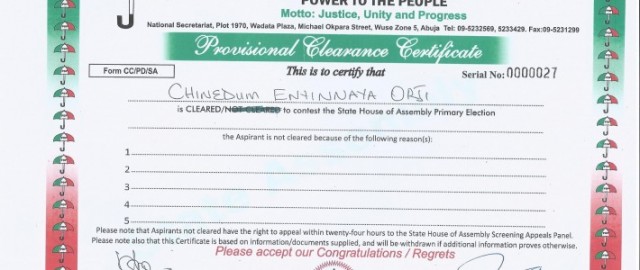 POWER TO THE PEOPLE
Motto: Justice, Unity and Progress
National Secretariat, Plot 1970, Wadata Plaza, Michael Okpara Street, Wuse Zone 5, Abuja Tel: 09-5232569, 5233429. Fax:09-5231299
Provisional Clearance Certificate
Form CC/PD/SA
This is to certify that
Serial No: 0000027
CHINEDUM ENYINNAYA ORJI
is CLEARED/NOT CLEARED to contest the State House of Assembly Primary Election
the Aspirant is not cleared because of the following reason(s):
1
2
3
4
5
Please note that Aspirants not cleared have the right to appeal within twenty-four hours to the State House of Assembly Screening Appeals Panel.
Please note also that this Certificate is based on information/documents supplied, and will be withdrawn if additional information proves otherwise.
Please accept our Congratulations / Regrets